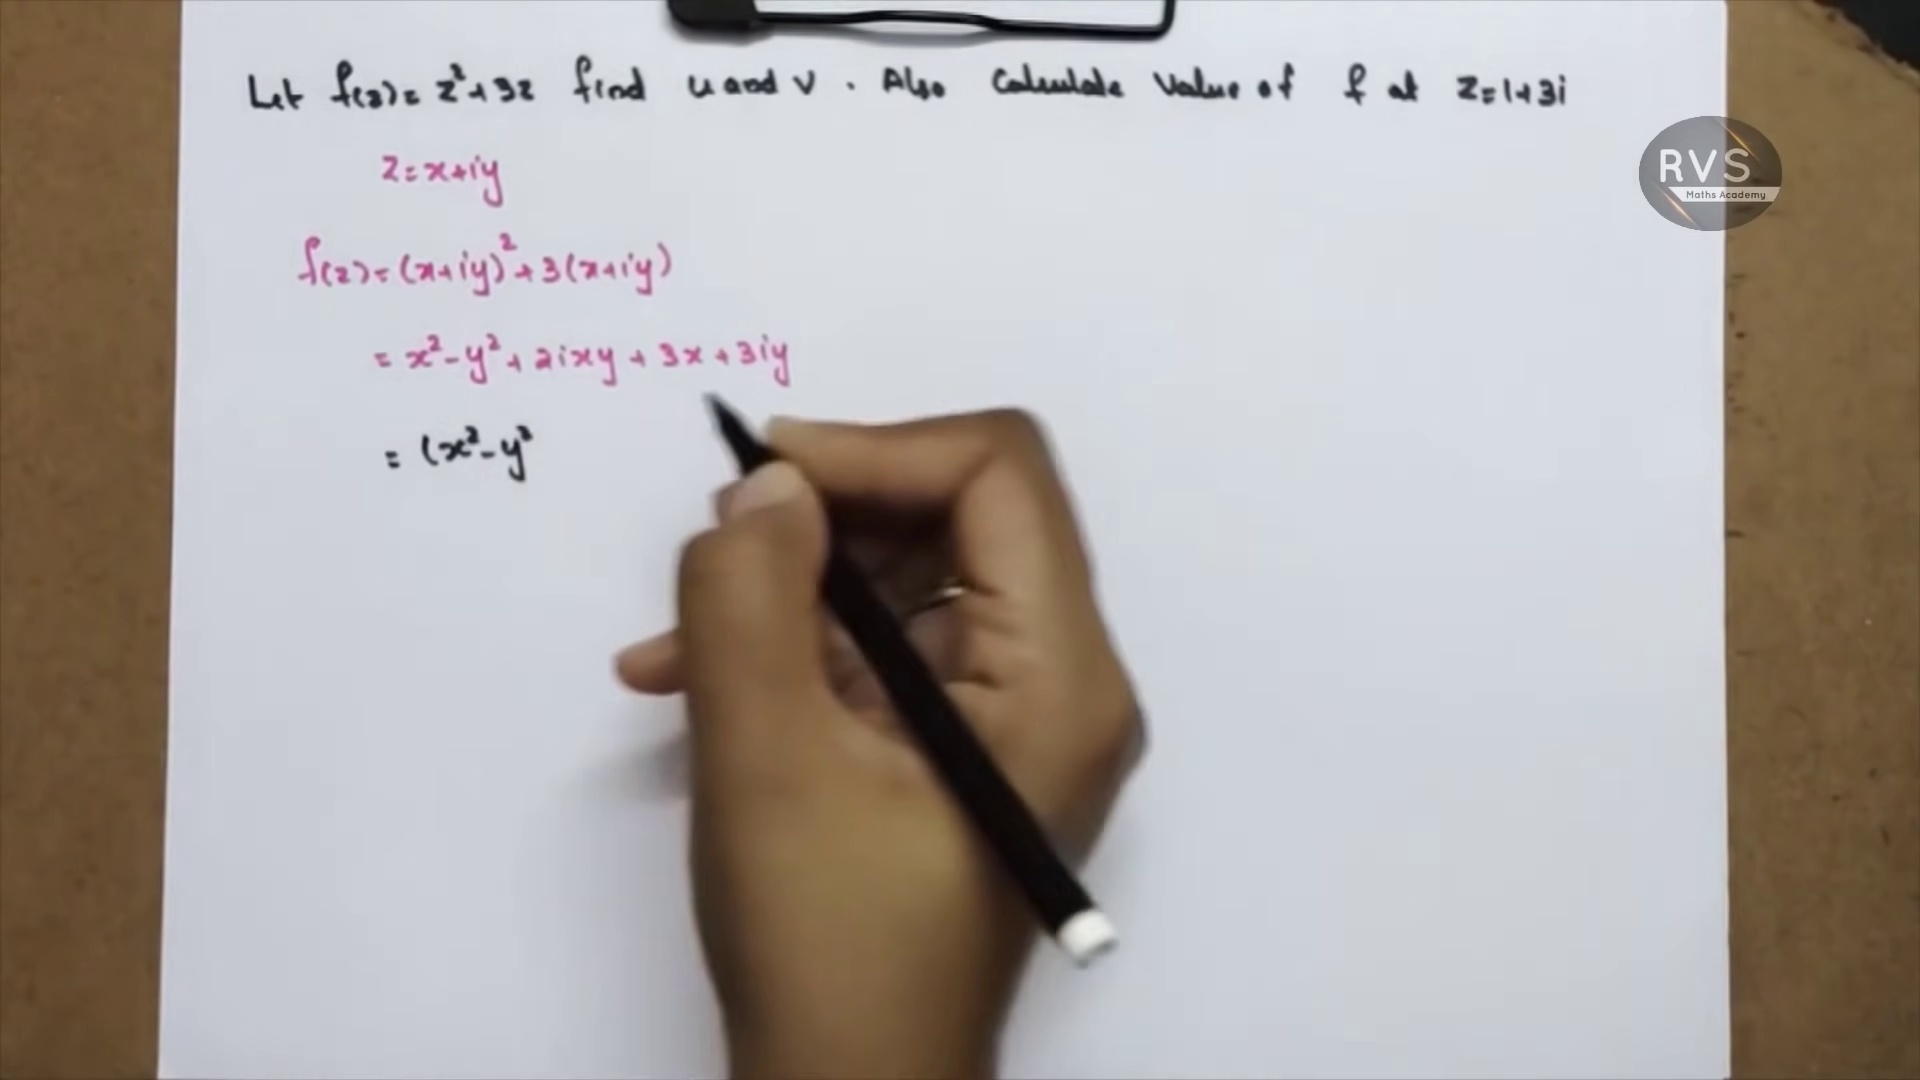 Let f(z) = z² + 3z find u and v . Also Calculate Value of f at z = 1+3i
RVS
Maths Academy
z = x+iy
f(z) = (x+iy)² + 3(x+iy)
= x² - y² + 2ixy + 3x + 3iy
= (x² - y²